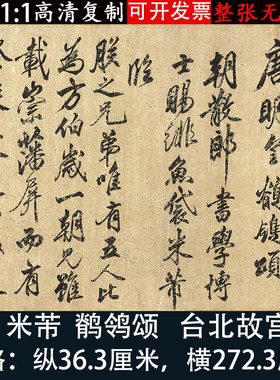 1:1高清复制 可开发票 整张无
唐明皇書鶺鴒頌
朝散郎書學博
士賜緋魚袋米芾
臨
朕之兄弟唯有五人比
為方伯歲一朝見雖
載崇藩屏而有
米芾 鹡鸰颂 台北故宫
格：纵36.3厘米，横272.3